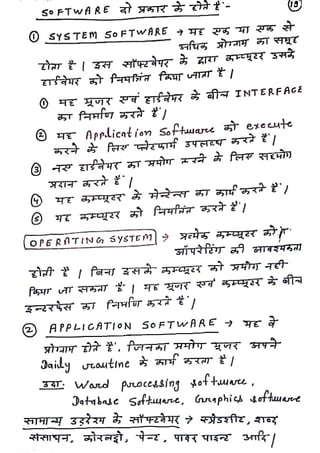 SOFTWARE दो प्रकार के होते हैं:- (19)
① SYSTEM SOFTWARE → यह एक या एक से
अधिक प्रोग्राम का समूह
होता है। इस सॉफ्टवेयर के द्वारा कम्प्यूटर उसके
हार्डवेयर को नियंत्रित किया जाता है।
① यह यूजर एवं हार्डवेयर के बीच INTERFACE
का निर्माण करते हैं।
② यह Application Software को execute
करने के लिए प्लेटफार्म उपलब्ध करते हैं।
③ नए हार्डवेयर का प्रयोग करने के लिए सहयोग
प्रदान करते हैं।
④ यह कम्प्यूटर के मेन्टेनेंस का कार्य करते हैं।
⑤ यह कम्प्यूटर को नियंत्रित करते हैं।
OPERATING SYSTEM → प्रत्येक कम्प्यूटर को
ऑपरेटिंग की आवश्यकता
होती है। बिना इसके कम्प्यूटर को प्रयोग नहीं
किया जा सकता है। यह यूजर एवं कम्प्यूटर के बीच
इन्टरफेस का निर्माण करते हैं।
② APPLICATION SOFTWARE → यह वे
प्रोग्राम होते हैं, जिनका प्रयोग यूजर अपने
Daily routine के कार्य करता है।
उदा: Word processing software,
Database Software, Graphics software
सामान्य उद्देश्य के सॉफ्टवेयर → स्प्रेडशीट, शब्द
संसाधन, कोरलड्रो, पेन्ट, पावर पाइन्ट आदि।